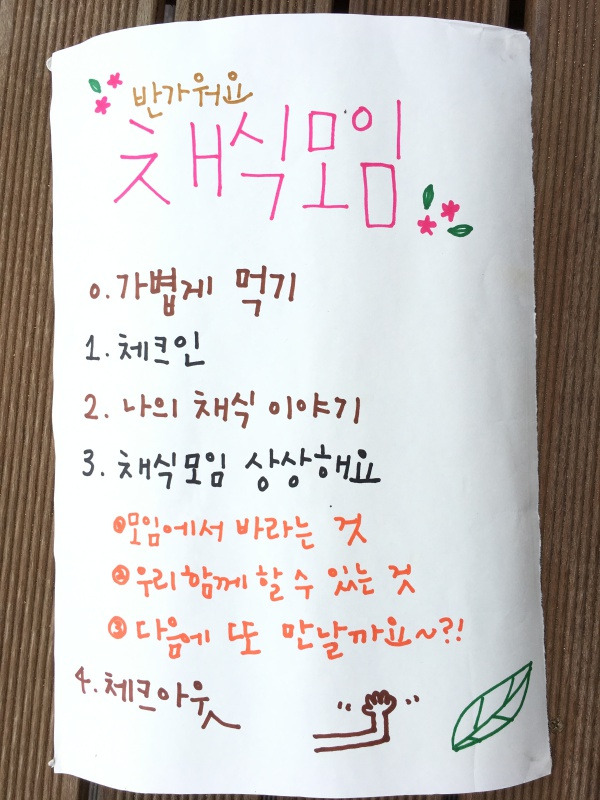 반가워요
채식모임
0. 가볍게 먹기
1. 체크인
2. 나의 채식 이야기
3. 채식모임 상상해요
① 모임에서 바라는 것
② 우리 함께 할 수 있는 것
③ 다음에 또 만날까요~?!
4. 체크아웃